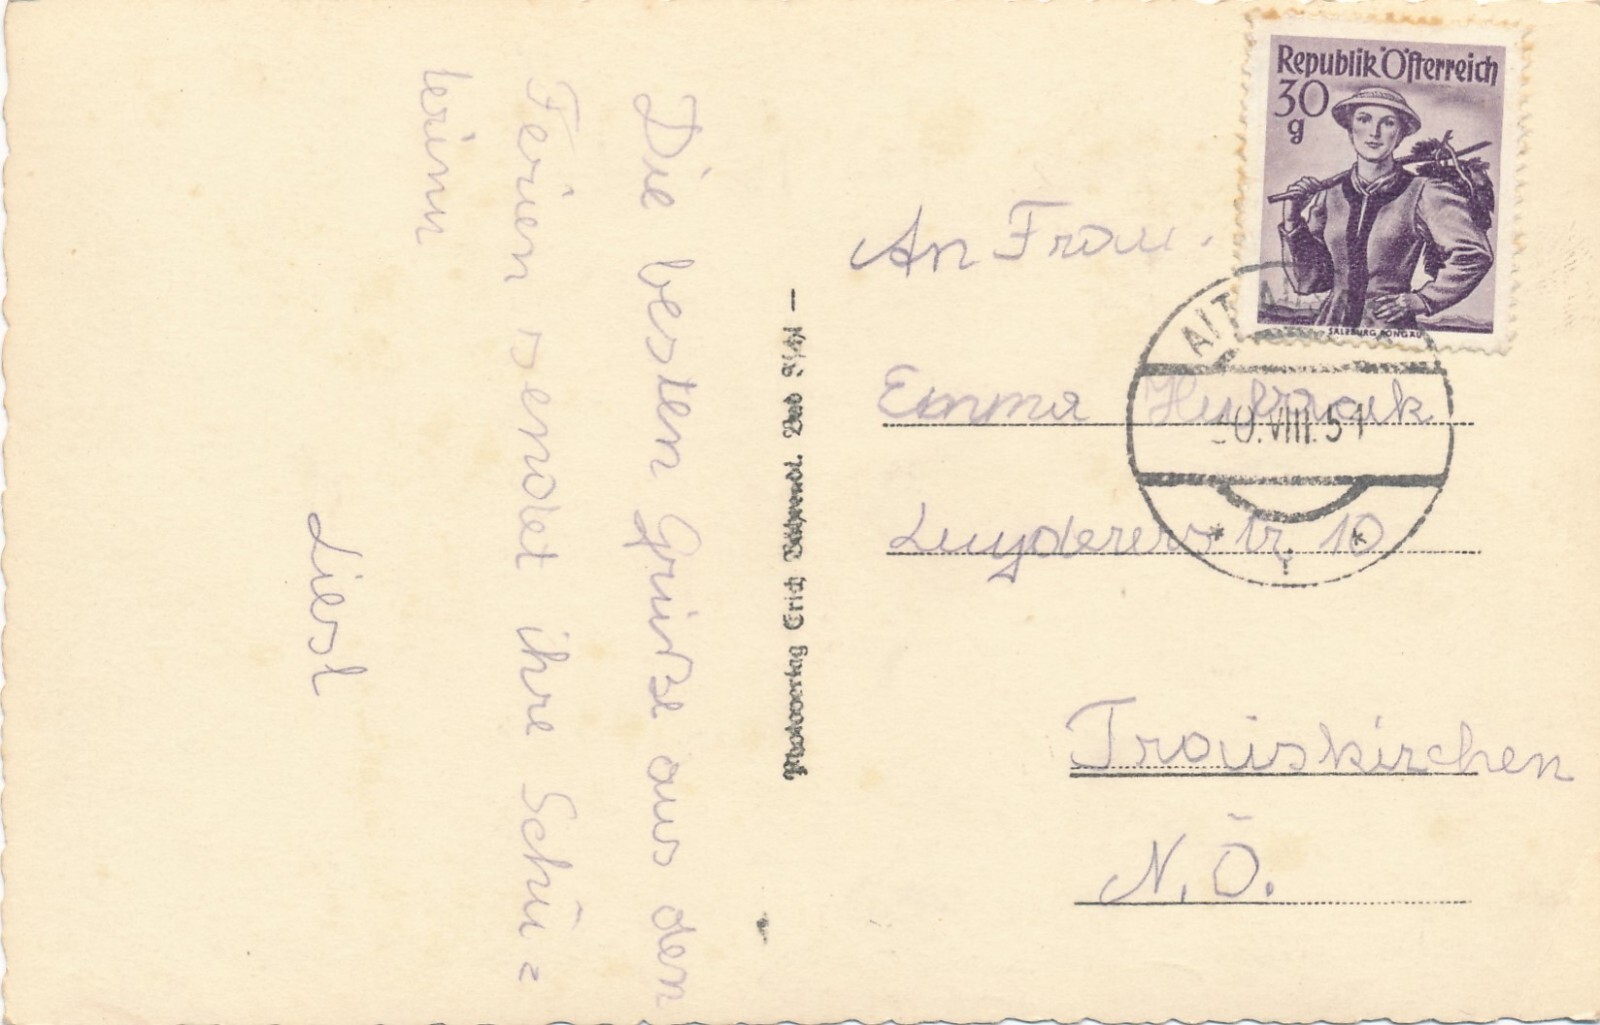 Die besten Grüße aus den
Ferien sendet ihre Schü=
lerinn
Liesl
Photoverlag Erich Bährendt. Bad Ischl –
Republik Österreich
30
g
SALZBURG, PONGAU
0.VIII.51
An Frau
Emma
10
Traiskirchen
N.Ö.